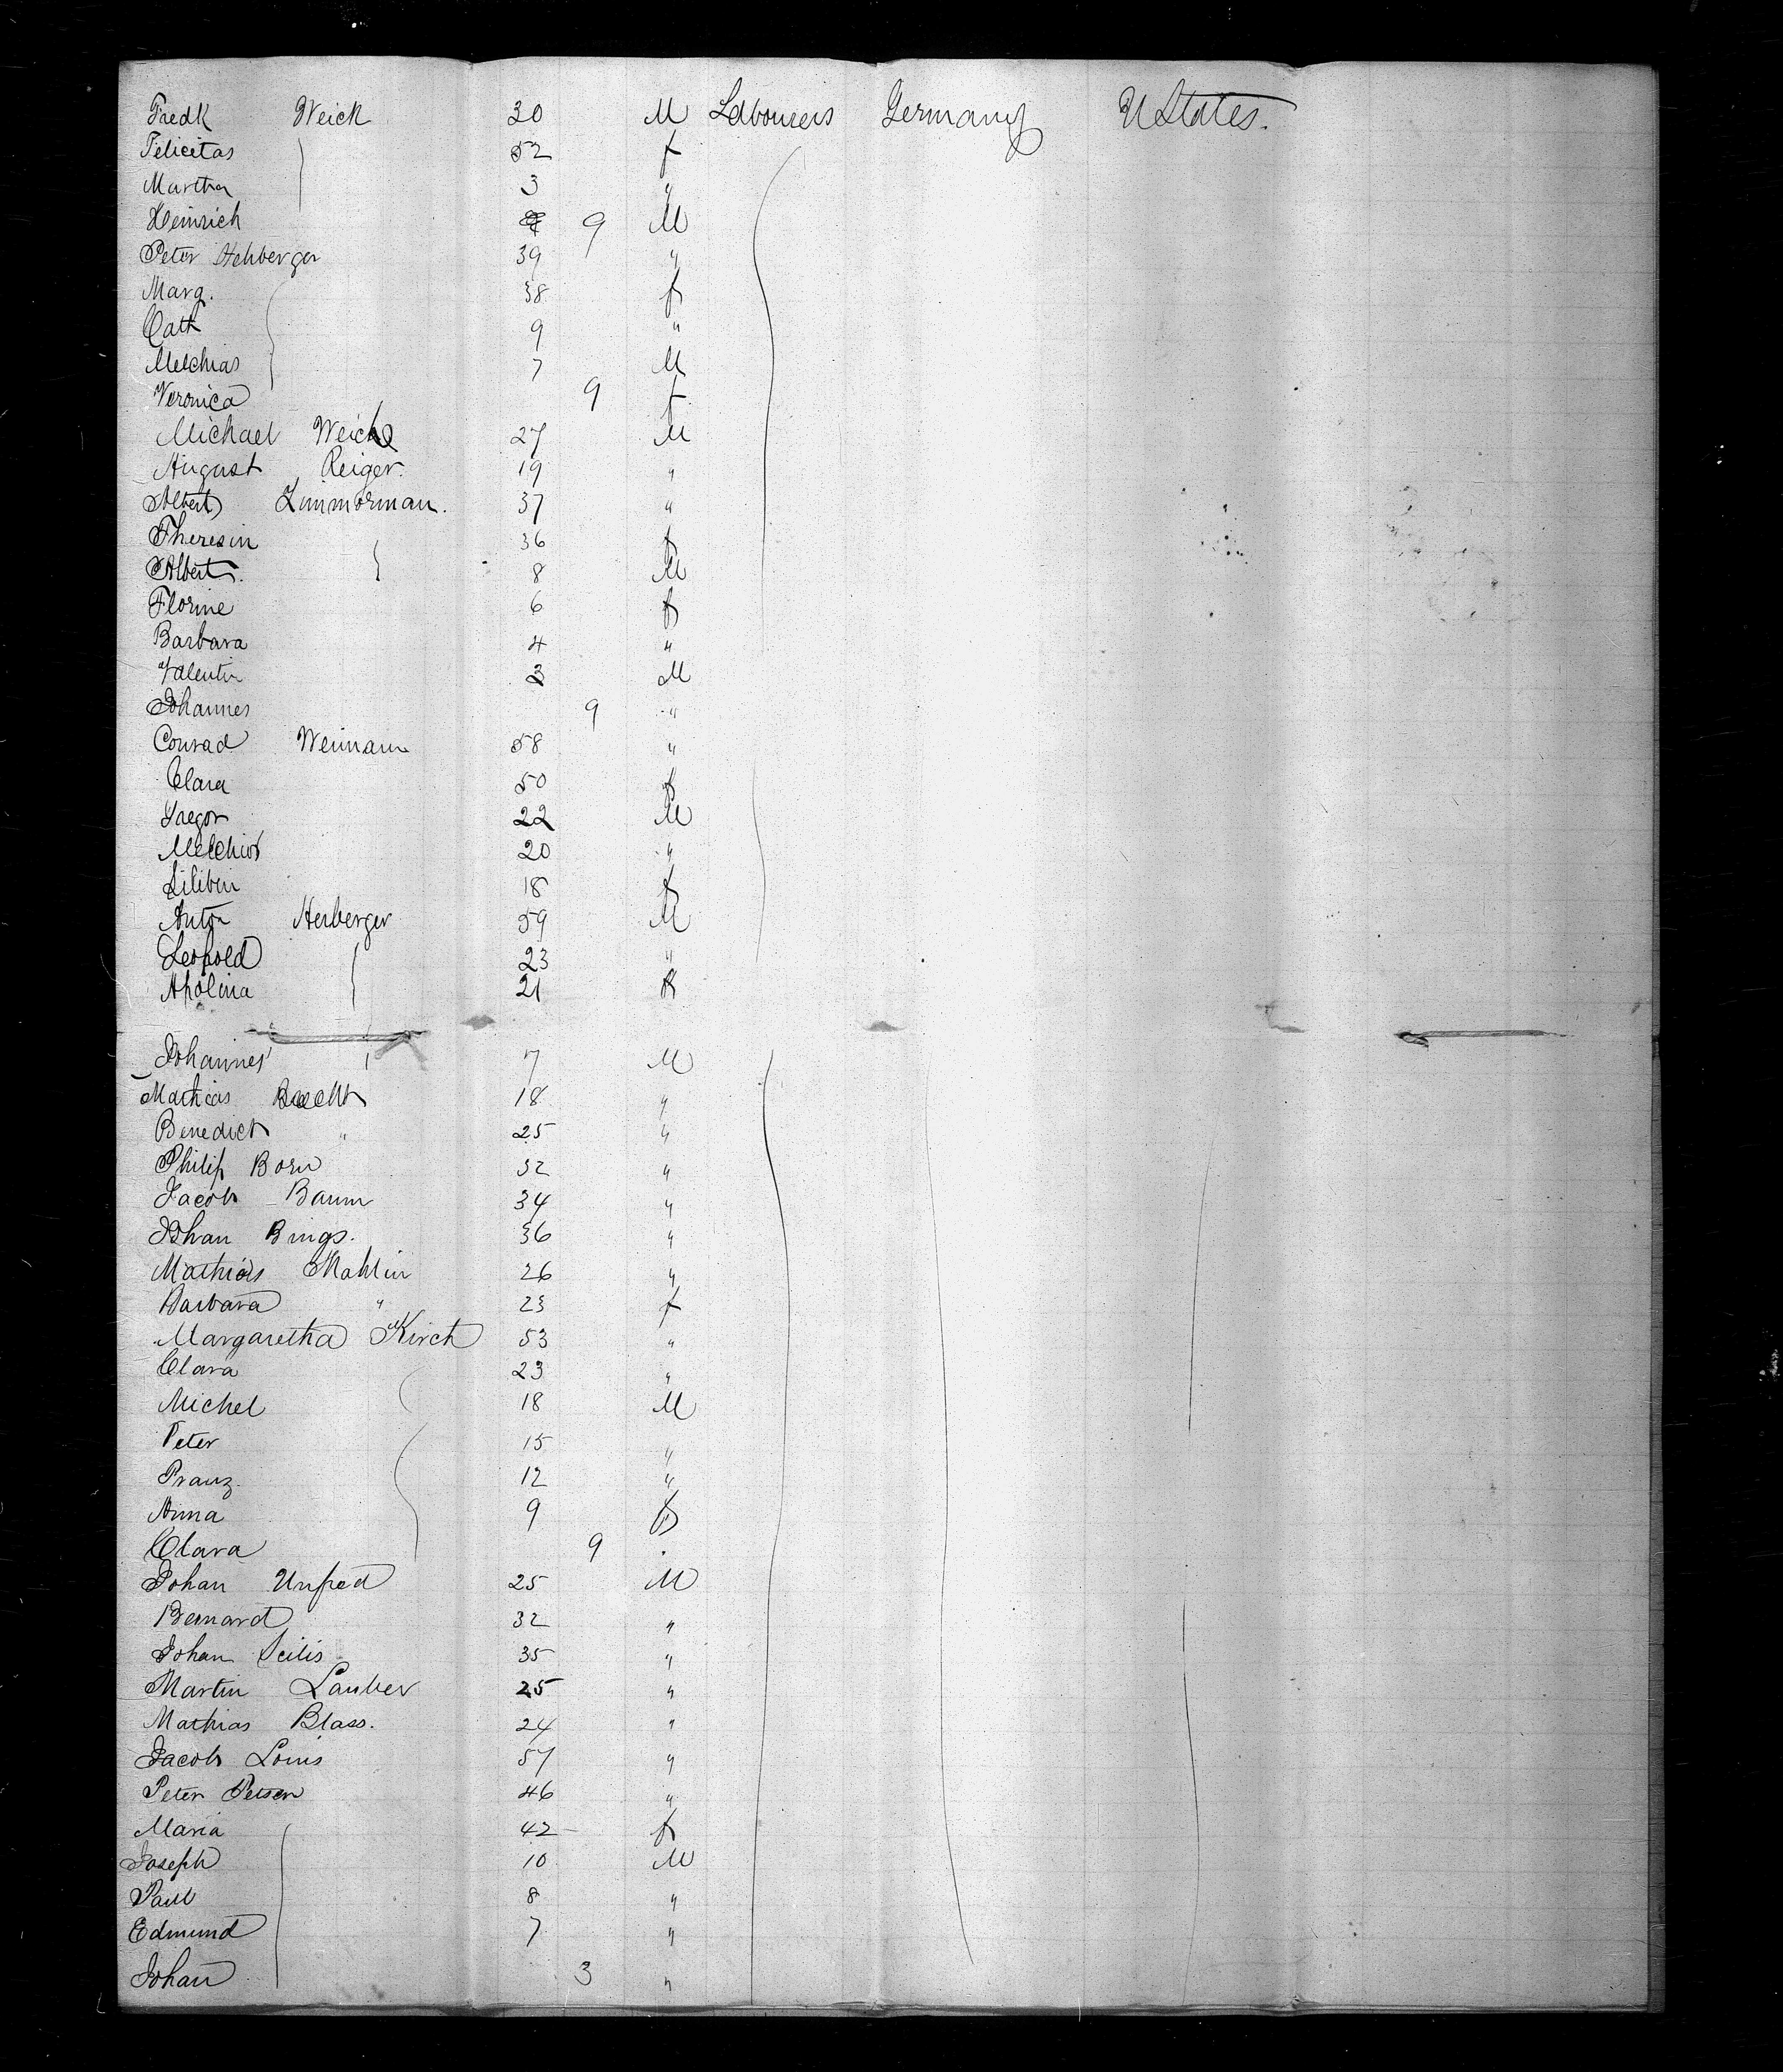 Fredk Weick 30 M Labourers Germany UStates.
Felicitas 52 f
Martha 3 "
Heinrich 9 M
Peter Hehberger 39 "
Marg. 38 f
Cath 9 "
Melchias 7 M
Veronica 9 f
Michael Weick 27 M
August Reiger. 19 "
Albert Zimmerman. 37 "
Theresin 36 f
Albert. 8 M
Florine 6 f
Barbara 4 "
Valentin M
Johannes 9 "
Conrad Weimann 58 "
Clara 50 f
Jaegor 22 M
Melchior 20 "
18 f
Anton Herberger 59 M
Leopold 23 "
Apolina 21 f
Johannes 7 M
Mathias 18 "
Benedict " 25 "
Philip Born 32 "
Jacob Baum 34 "
Johan Bings. 36 "
Mathias Mahlin 26 "
Barbara " 23 f
Margaretha Kirch 53 "
Clara 23 "
Michel 18 M
Peter 15 "
Franz. 12 "
Anna 9 f
Clara 9
Johan Unfred 25 M
Bernard 32 "
Johan Seilis 35 "
Martin Lauber 25 "
Mathias Blass. 24 "
Jacob Louis 57 "
Peter Petser 46 "
Maria 42 f
Joseph 10 M
Paul 8 "
Edmund 7 "
Johan 3 "